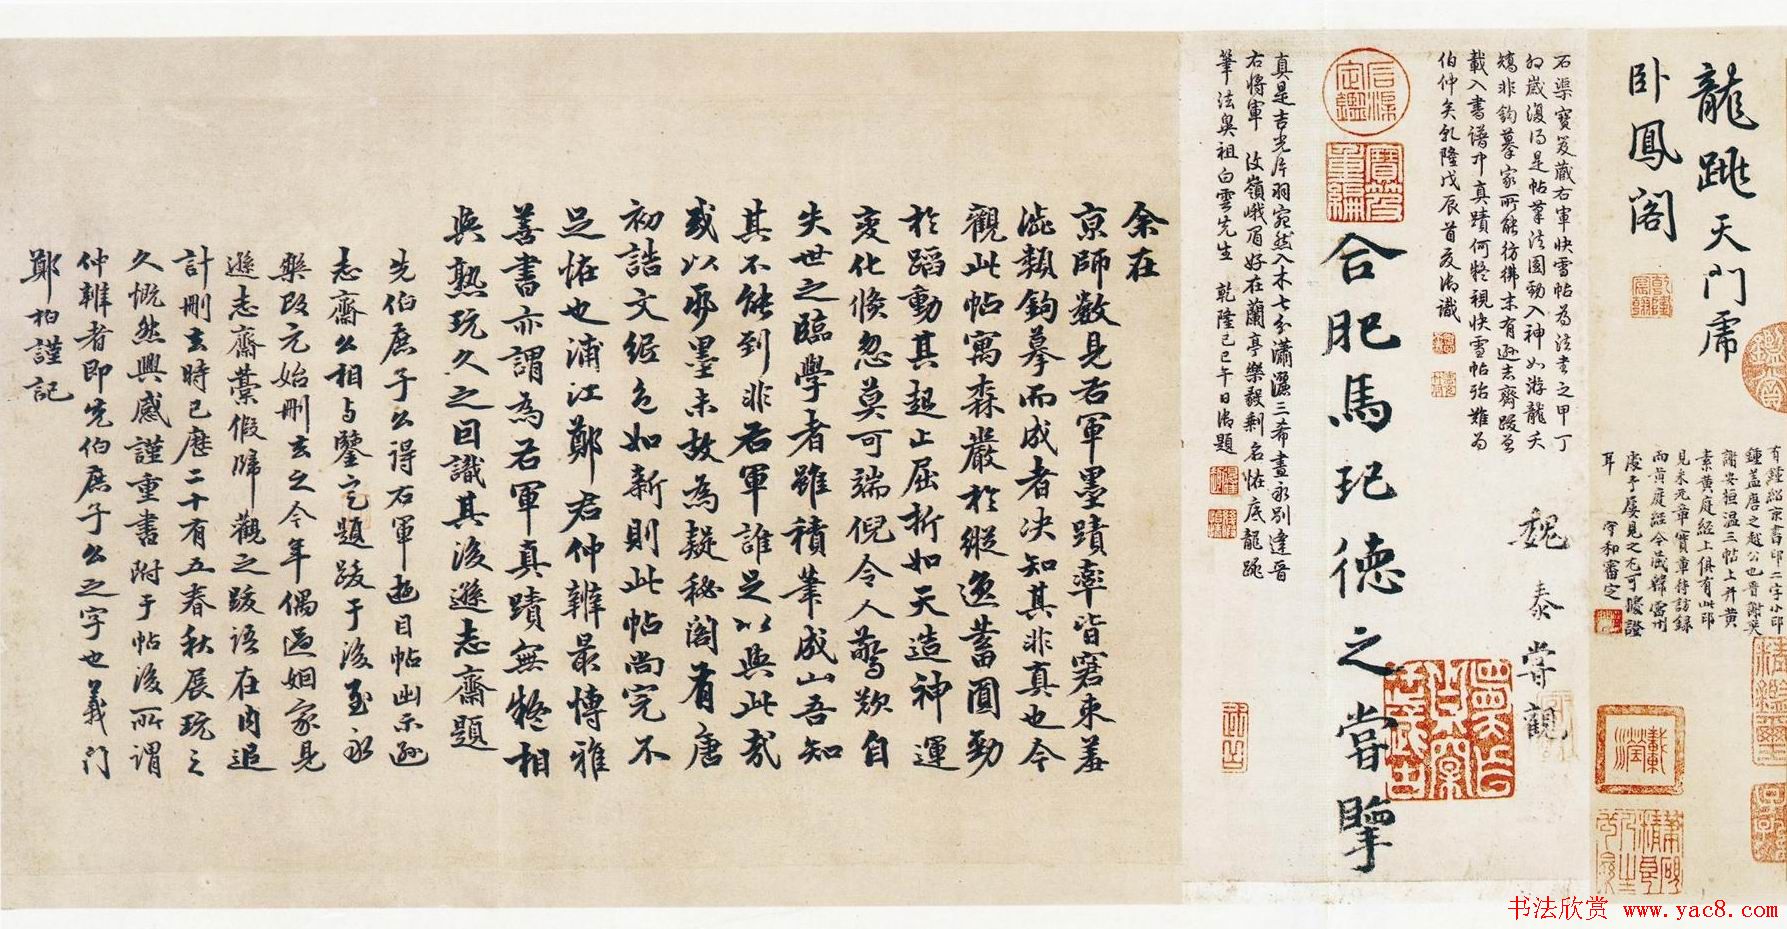 龍跳天門虎
卧鳳閣
有鍾紹京書印二字小印
鍾蓋唐之越公也晋謝奕
謝安桓温三帖上并黄
素黄庭經上俱有此印
見米元章寳章待訪録
而黄庭經今藏韓宗伯
處予屡見之尤可騐證
耳 守和審定
石渠寳笈藏右軍快雪帖為法書之甲丁
卯嵗復得是帖筆法圓勁入神如游龍夭
矯非鈎摹家所能彷彿末有遜志齋跋並
載入書譜中真蹟何疑視快雪帖殆難為
伯仲矣乾隆戊辰首夏御識
魏 泰 嘗 觀
合肥馬玘德之嘗擥
真是吉光片羽宛然入木七分瀟灑三希畫永别逢晋
右將軍 汝嶺峨眉好在蘭亭樂毅剩名恠底龍跳
筆法奥祖白雲先生 乾隆己巳午日御題
余在
京師數見右軍墨蹟率皆窘束羞
澁類鈎摹而成者决知其非真也今
觀此帖寓森嚴於縱逸蓄圓勁
於蹈動其起止屈折如天造神運
变化倏忽莫可端倪令人驚歎自
失世之臨學者雖積筆成山吾知
其不能到非右軍誰足以與此哉
或以爲墨未故為疑秘閣有唐
初誥文紙色如新則此帖尚完不
足恠也浦江鄭君仲辯最愽雅
善書亦謂為右軍真蹟無疑相
與熟玩久之因識其後遜志齋題
先伯庶子公得右軍遊目帖出示遜
志齋公相与鑒定題跋于後至永
樂改元始刪去之今年偶過姻家見
遜志齋藁假歸觀之跋語在内追
計刪去時已歷二十有五春秋展玩之
久慨然興感謹重書附于帖後所謂
仲辯者即先伯庶子公之字也義门
鄭柏謹記
书法欣赏 www.yac8.com